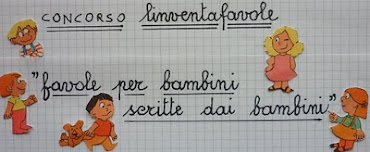 CONCORSO linventafavole
"favole per bambini
scritte dai bambini"